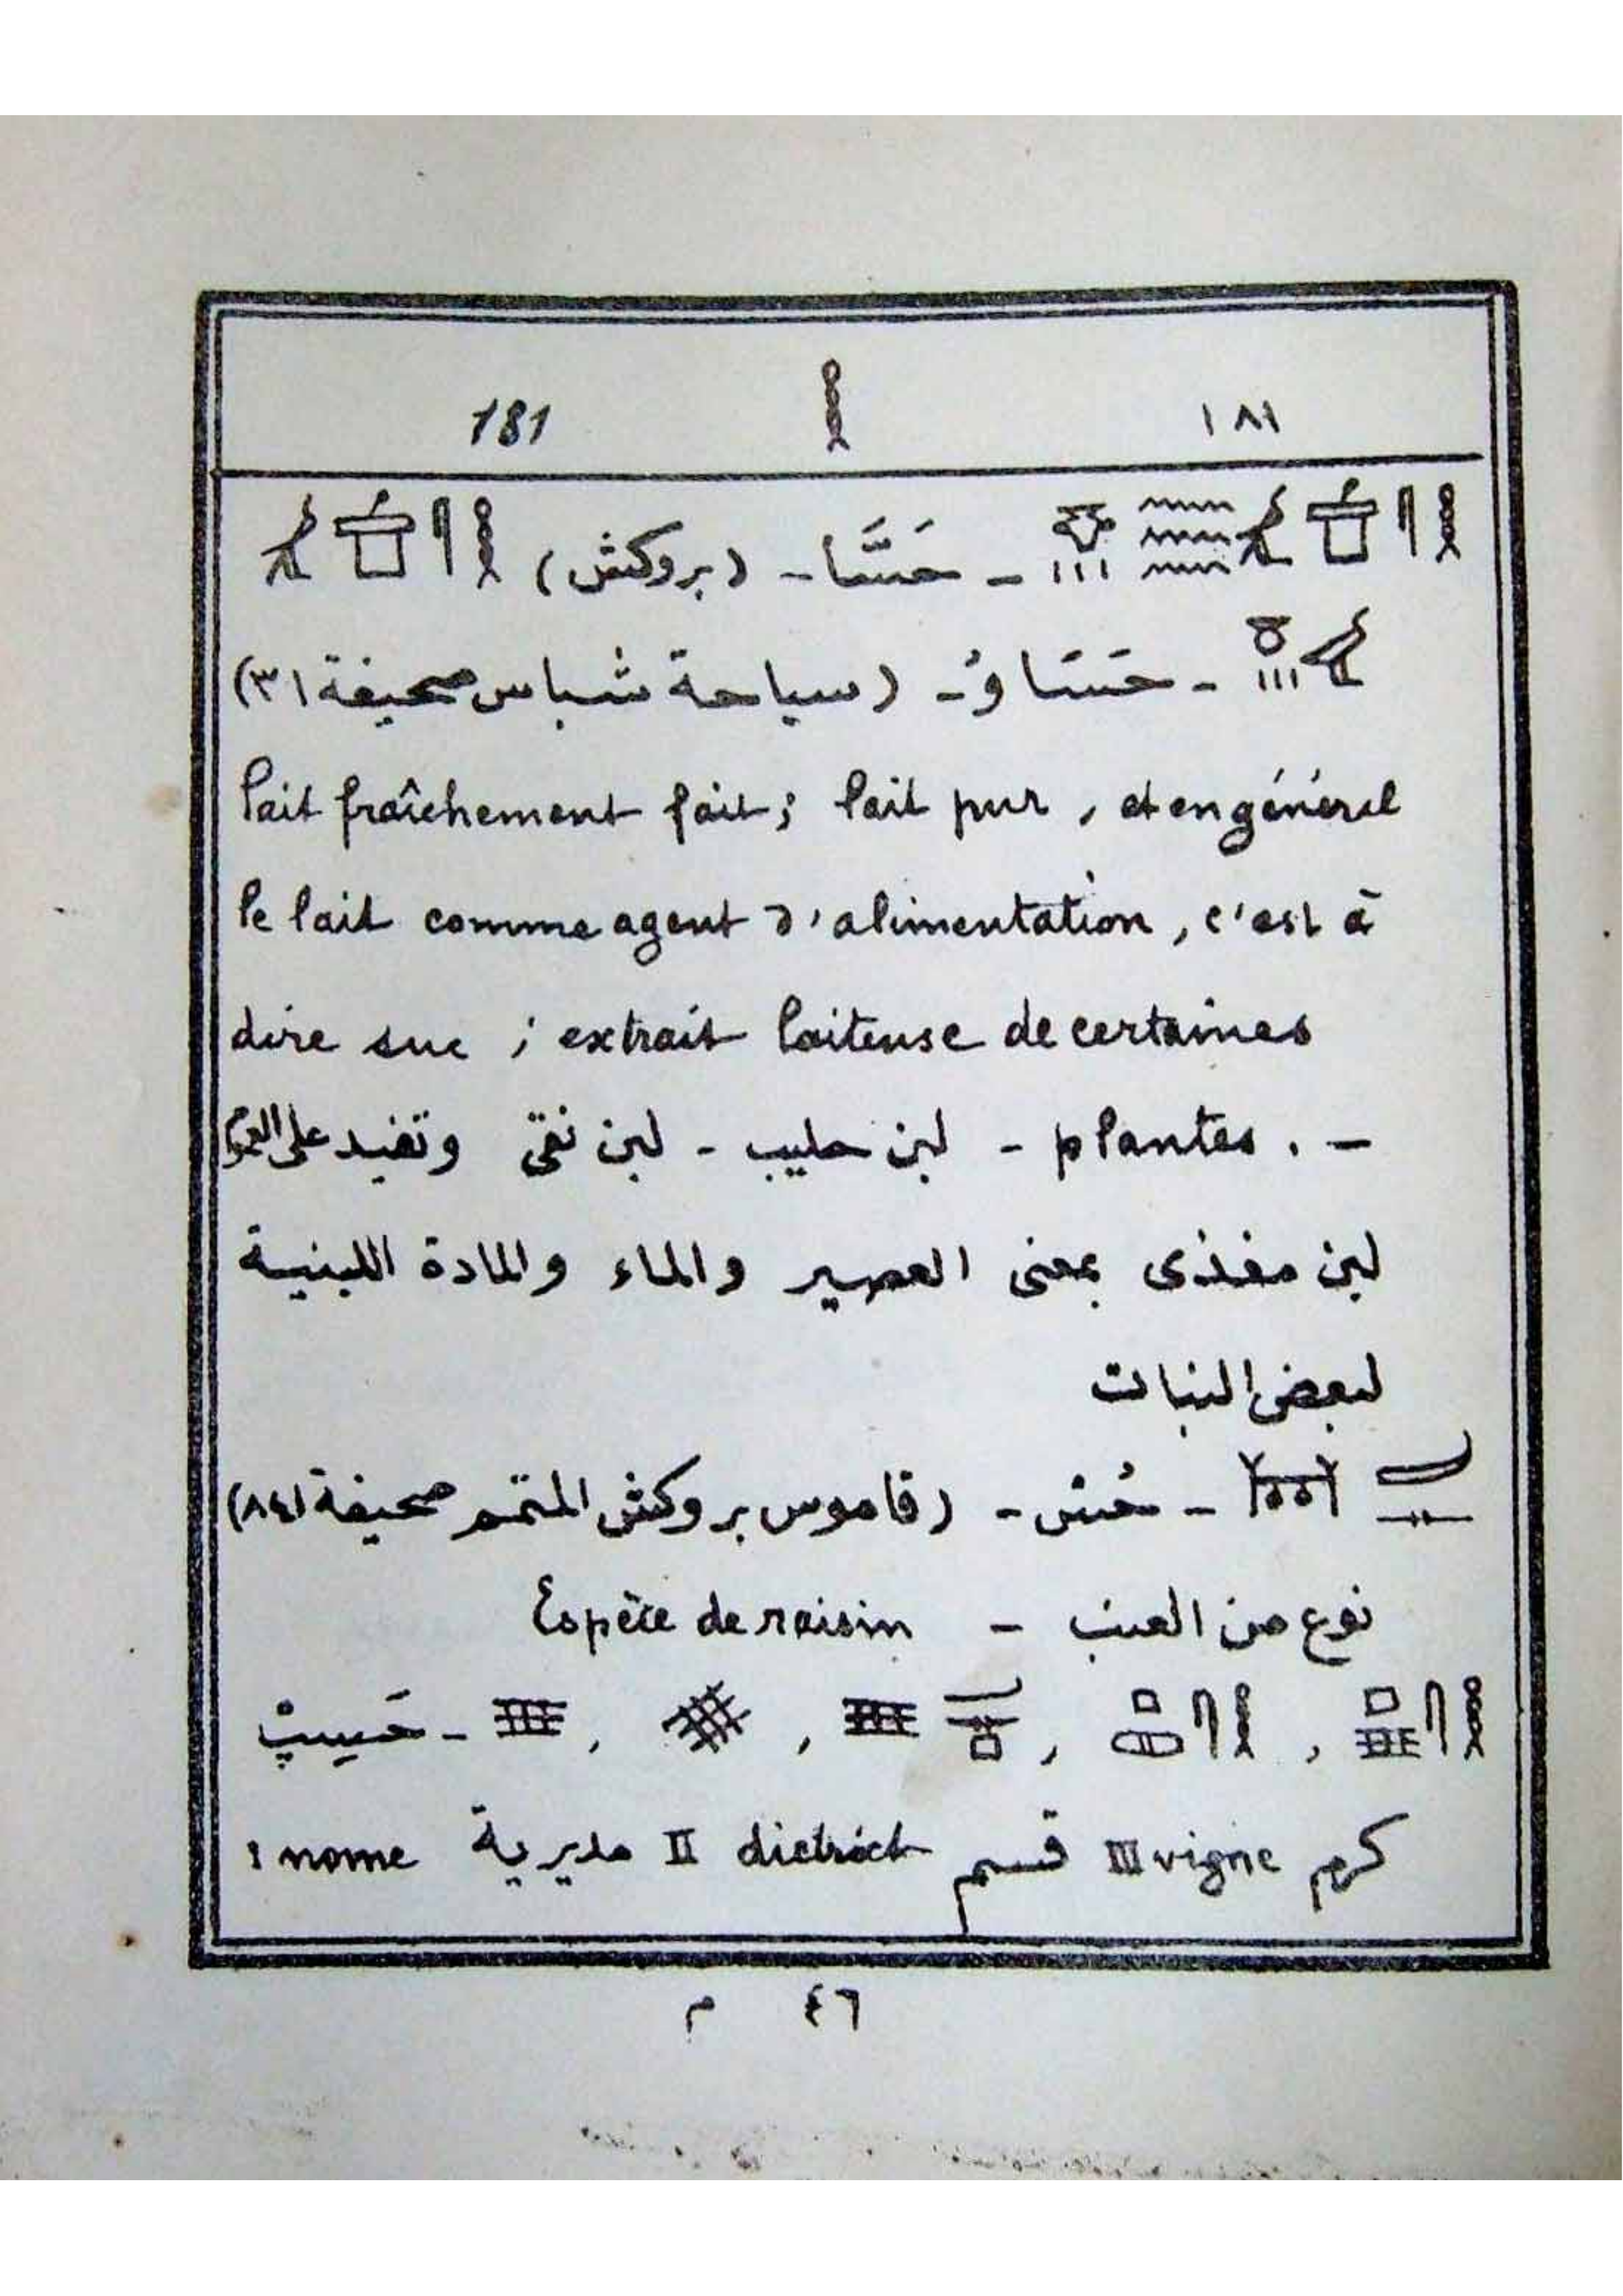 181 ١٨١
- حَسَّا - (بروكش)
- حَسَا وُ - (سياحة شباس صحيفة ٣١)
lait fraîchement fait; lait pur, et en général
le lait comme agent d'alimentation, c'est à
dire suc; extrait laiteuse de certaines
plantes. - - لبن حليب - لبن نقى وتفيد على العموم
لبن مغذى بمعنى العصير والماء والمادة اللبنية
لبعض النبات
- حُس - (قاموس بروكش المتمم صحيفة ٨٤١)
نوع من العنب - Espèce de raisin
, , , , - حَسِپْ
كرم III vigne قسم II district مديرية nome I
٤٦ م